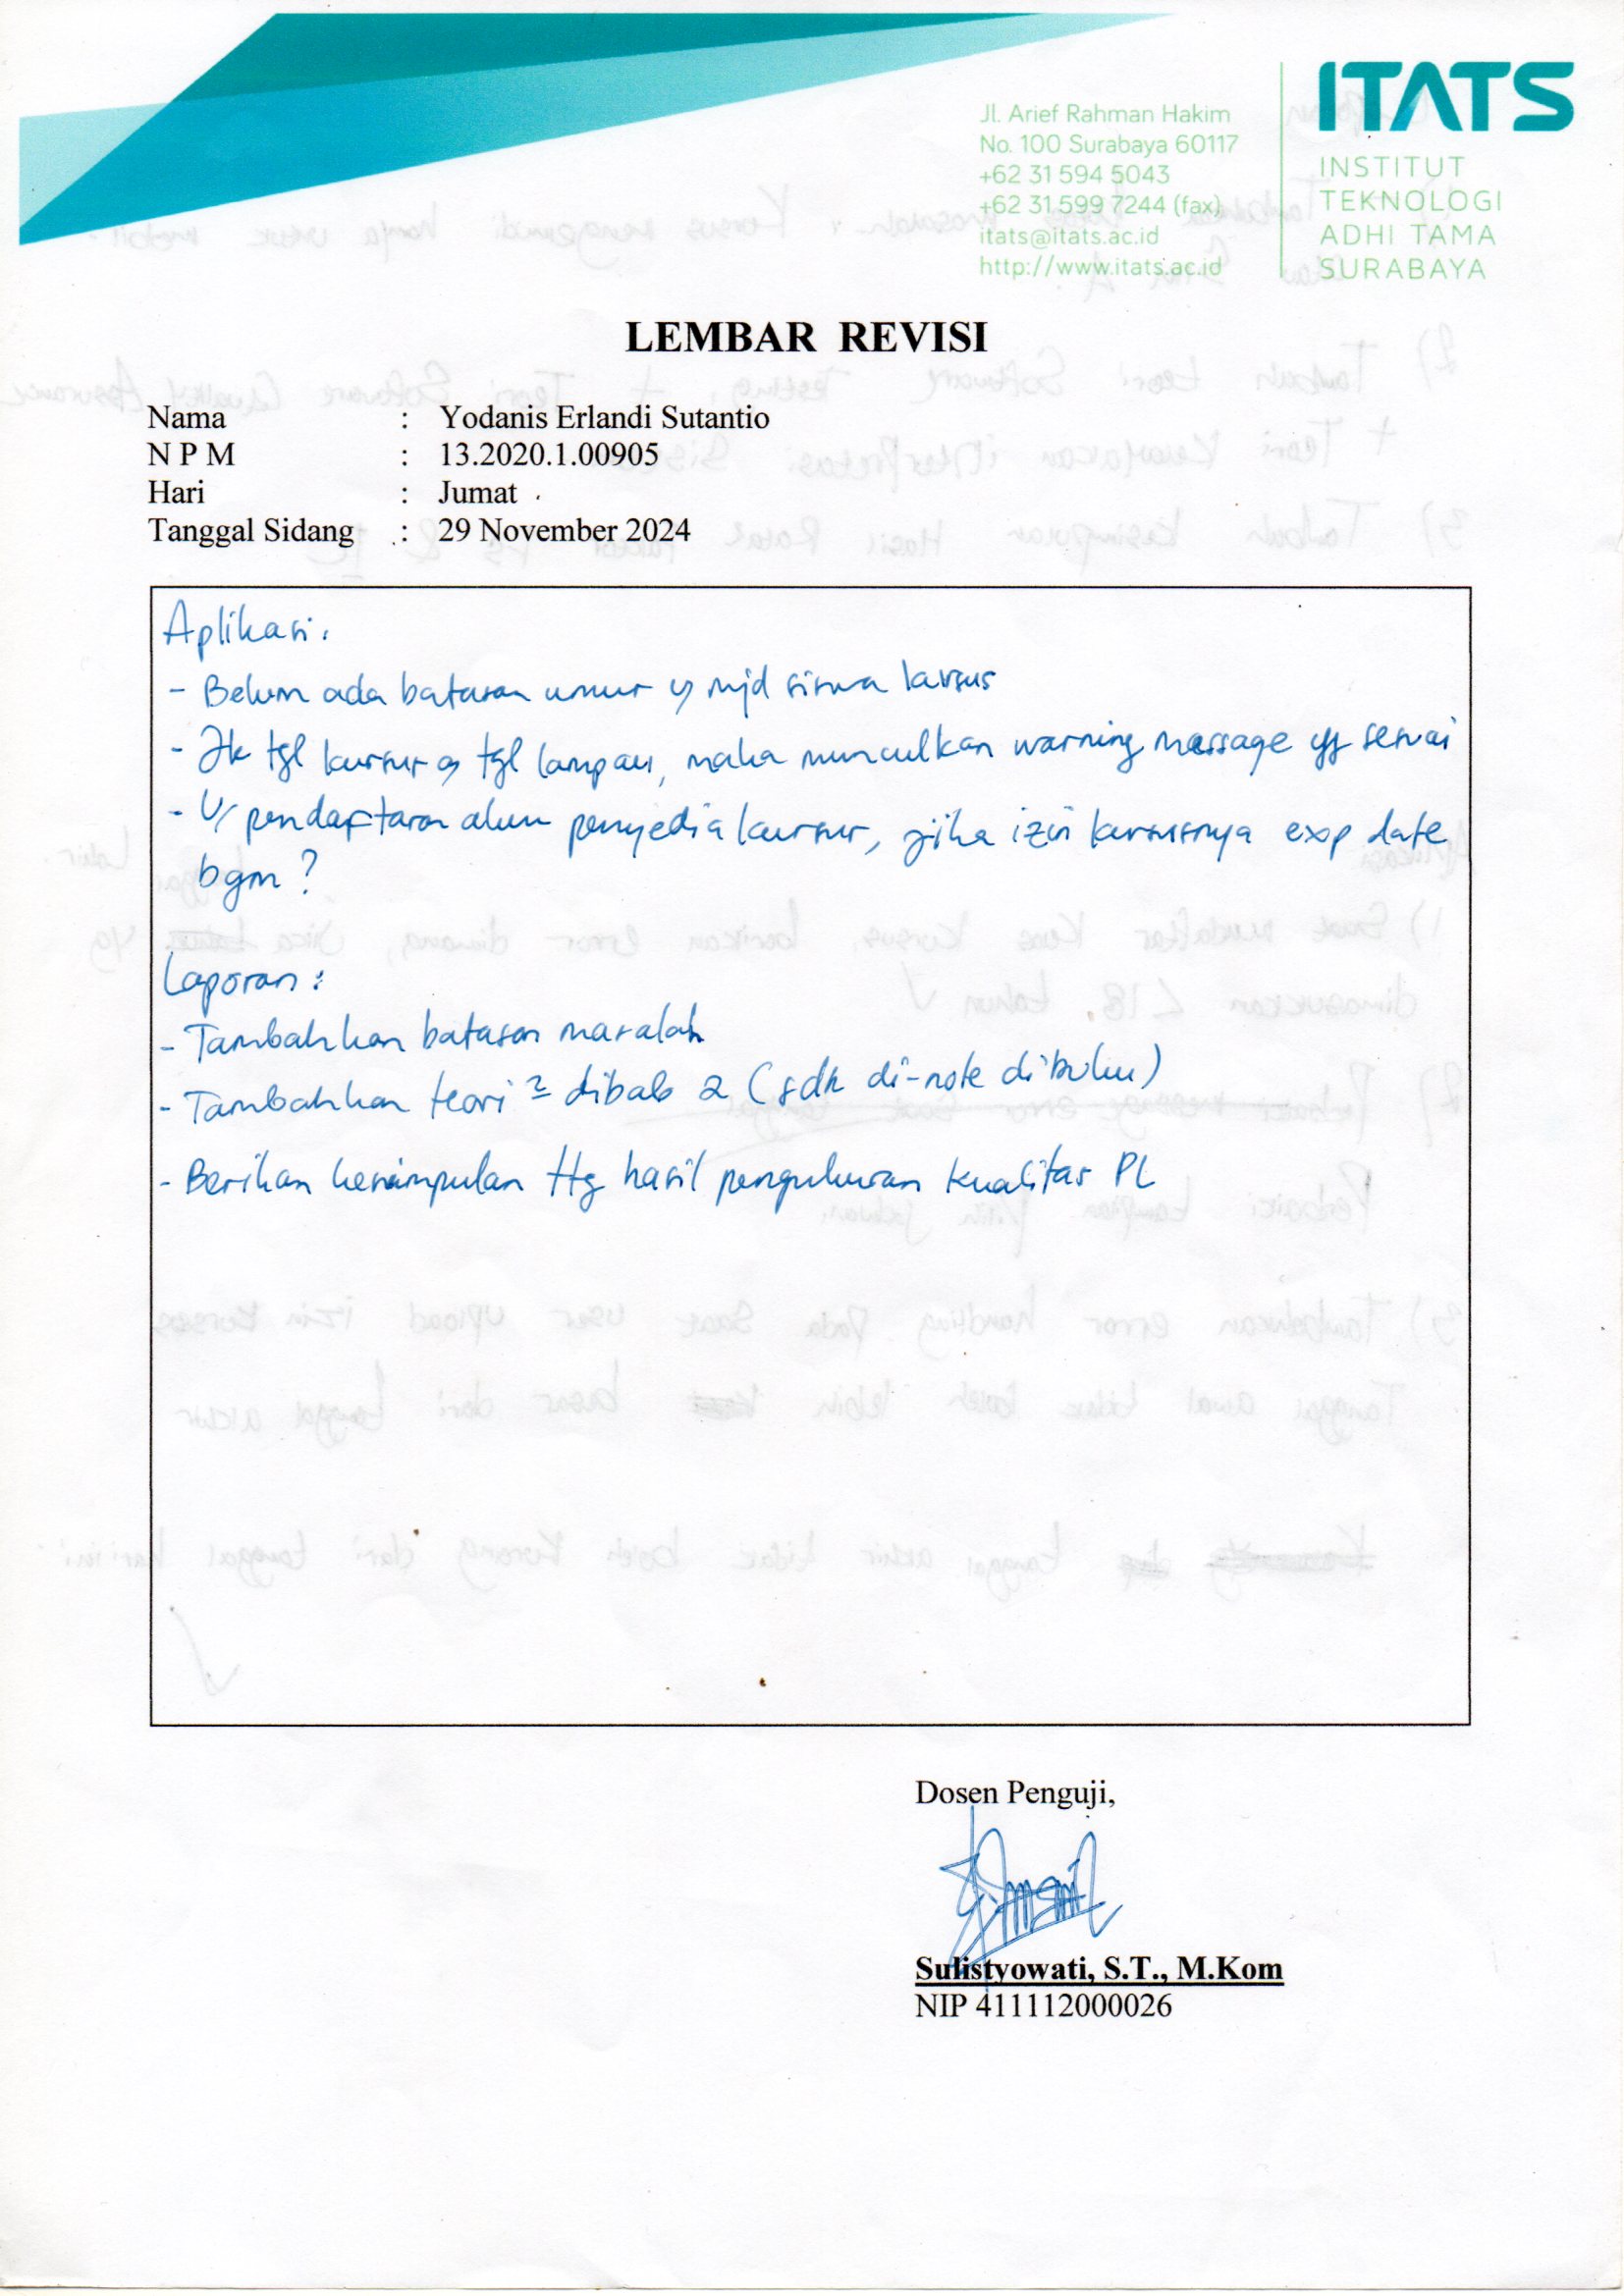 ITATS
INSTITUT
TEKNOLOGI
ADHI TAMA
SURABAYA
Jl. Arief Rahman Hakim
No. 100 Surabaya 60117
+62 31 594 5043
+62 31 599 7244 (fax)
itats@itats.ac.id
http://www.itats.ac.id
LEMBAR REVISI
Nama : Yodanis Erlandi Sutantio
N P M : 13.2020.1.00905
Hari : Jumat
Tanggal Sidang : 29 November 2024
Aplikasi.
- Belum ada batasan umur y mjd siswa kursus
- Jk tgl kursus tgl lampau, maka munculkan warning massage yg sesuai
- U/ pendaftaran akun penyedia kursus, jika izin kursusnya exp date
bgm ?
Laporan :
- Tambahkan batasan masalah
- Tambahkan teori² dibab 2 (sdh di-note dibuku)
- Berikan kesimpulan ttg hasil pengukuran kualitas PL
Dosen Penguji,
Sulistyowati, S.T., M.Kom
NIP 411112000026